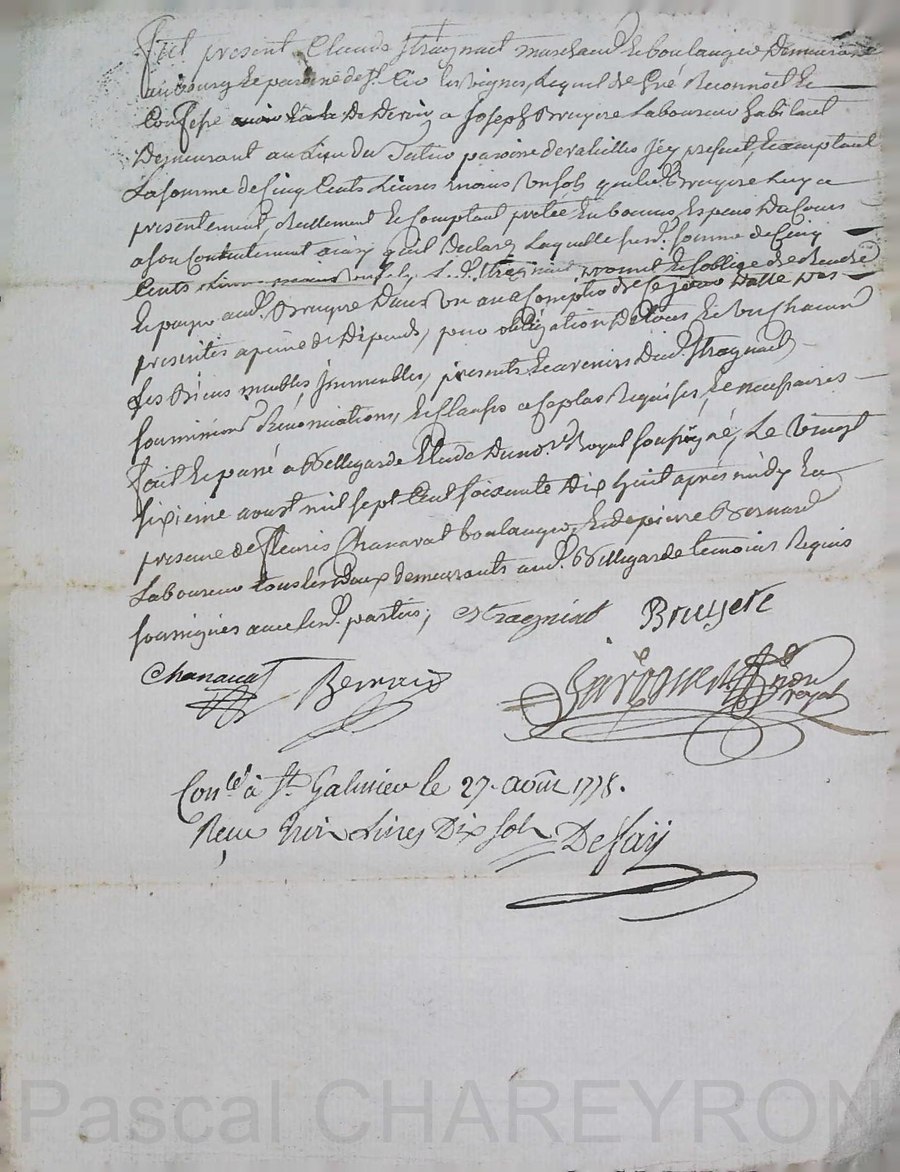 Fut présent Claude Stragniat marchand et boulanger demeurant
au bourg et paroisse de St Cir les vignes, Lequel de Gré Reconnoit et
Confesse avoir de devoir a Joseph Bruyere Laboureur habitant
Demeurant au Lieu du paroisse de Valeilles Icy present, et acceptant
La somme de Cinq Cents Livres moins un sols que led. Bruyere Luy a
presentement, Reellement et Comptant pretée En bonnes Especes Du Cours
a son Contentement ainsy quil Declare, Laquelle susd. somme de Cinq
Cents Livres moins un sols, L. d. Stragniat promet et soblige de rendre
Et payer aud. Bruyere Dans un an a Compter de Ce jour datte des
presentes a peine de Dépends, pour obligation De tous et un Chacun
ses Biens meubles Immeubles, presents Et avenirs Dud. Stragniat
soumissions Renonciations, et Clauses a Ce plus Requises, et necessaires
fait et passé a Bellegarde Etude Du nore. Royal soussigné, Le vingt
sixieme aoust mil sept Cent soixante Dix huit après midy En
presence de fleuris Chanavat boulanger, et de pierre Bernard
Laboureur tous les deux demeurants aud. Bellegarde temoins Requis
soussignés avec les d. parties;
Stragniat Bruyere
Chanavat Bernard
nore royal
Conlé à St Galmier le 27. août 1778.
Reçu trois Livres Dix sols Defay
Pascal CHAREYRON